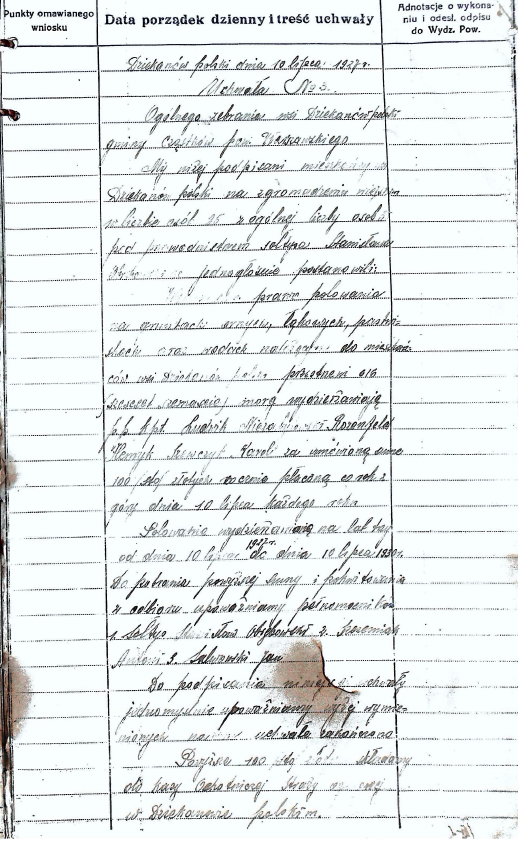 Punkty omawianego
wniosku
Data porządek dzienny i treść uchwały
Adnotacje o wykona-
niu i odesł. odpisu
do Wydz. Pow.
Dziekanów polski dnia 10 lipca 1927 r.
Uchwała No 3.
Ogólnego zebrania wsi Dziekanów polski
gminy Cząstków pow. Warszawskiego
My niżej podpisani mieszkańcy wsi
Dziekanów polski na zgromadzeniu
w liczbie osób 25 z ogólnej liczby osób
pod przewodnictwem sołtysa Stanisława
jednogłośnie postanowili
prawo polowania
na gruntach ornych, łąkowych, pastwi-
skach oraz wodach należących do mieszkań-
ców wsi Dziekanów polski przestrzeni 616
(sześćset szesnaście) morg wydzierżawiają
p.p. Kpt. Ludwik Rozenfeld
Henryk Szewczyk Karol za umówioną sumę
100 (sto) złotych rocznie płacaną co rok z
góry dnia 10 lipca każdego roku
Polowania wydzierżawiają na lat trzy
od dnia 10 lipca 1927 r. do dnia 10 lipca 1930 r.
Do pobrania powyższej sumy i pokwitowania
z odbioru upoważniamy pełnomocników
1. Sołtys 2.
3. Jan
Do podpisania niniejszej uchwały
jednomyślnie upoważniamy wyżej wymie-
nionych uchwała zakończona
Powyższe 100 (sto) złotych składamy
do kasy Ochotniczej Straży
w Dziekanowie polskim.